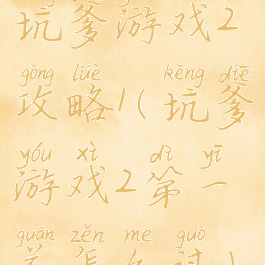 坑爹游戏2
gōng lüè kēng diē
攻略1(坑爹
yóu xì dì yī
游戏2第一
guān zěn me guò
关怎么过)